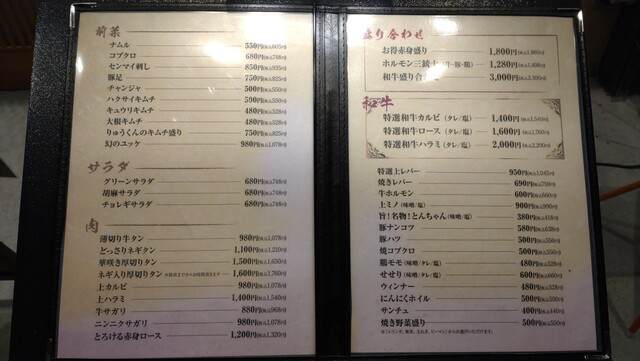 前菜
ナムル 550円(税込605円)
コブクロ 680円(税込748円)
センマイ刺し 850円(税込935円)
豚足 750円(税込825円)
チャンジャ 500円(税込550円)
ハクサイキムチ 590円
キュウリキムチ 480円
大根キムチ 480円
りゅうくんのキムチ盛り 750円(税込825円)
幻のユッケ 980円(税込1,078円)
サラダ
グリーンサラダ 680円(税込748円)
胡麻サラダ 680円(税込748円)
チョレギサラダ 680円(税込748円)
肉
薄切り牛タン 980円(税込1,078円)
どっさりネギタン 1,100円(税込1,210円)
華咲き厚切りタン 1,500円(税込1,650円)
ネギ入り厚切りタン 1,600円(税込1,760円)
上カルビ 980円(税込1,078円)
上ハラミ 1,400円(税込1,540円)
牛サガリ 880円(税込968円)
ニンニクサガリ 980円(税込1,078円)
とろける赤身ロース 1,200円(税込1,320円)
盛り合わせ
お得赤身盛り 1,800円(税込1,980円)
ホルモン三銃士(牛・豚・鶏) 1,280円(税込1,408円)
和牛盛り合 3,000円(税込3,300円)
和牛
特選和牛カルビ(タレ/塩) 1,400円(税込1,540円)
特選和牛ロース(タレ/塩) 1,600円(税込1,760円)
特選和牛ハラミ(タレ/塩) 2,000円(税込2,200円)
特選上レバー 950円(税込1,045円)
焼きレバー 690円(税込759円)
牛ホルモン 600円(税込660円)
上ミノ(味噌/塩) 900円(税込990円)
旨!名物!とんちゃん(味噌/塩) 380円(税込418円)
豚ナンコツ 580円(税込638円)
豚ハツ 500円(税込550円)
焼コブクロ 500円(税込550円)
鶏モモ(味噌/タレ/塩) 480円(税込528円)
せせり(味噌/タレ/塩) 600円(税込660円)
ウィンナー 480円(税込528円)
にんにくホイル 500円(税込550円)
サンチュ 400円(税込440円)
焼き野菜盛り 500円(税込550円)